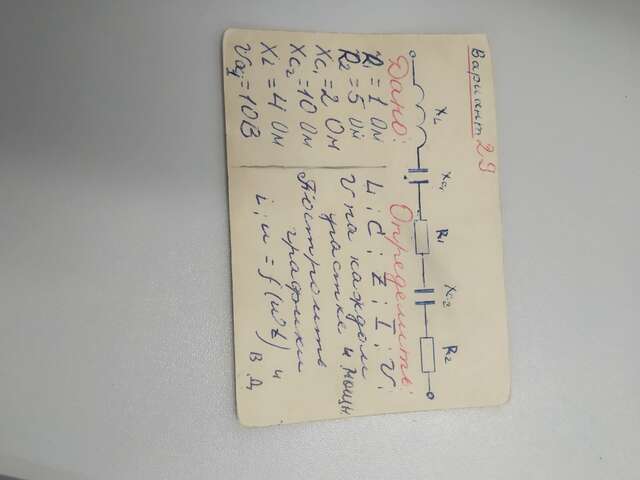 Вариант 29
XL Xc₁ R1 Xc2 R2
Дано:
R1 = 1 Ом
R2 = 5 Ом
Xc1 = 2 Ом
Xc2 = 10 Ом
XL = 4 Ом
= 10В
Определить:
L; C; Z; I; U;
U на каждом
участке и мощн.
Построить
графики
i; u = f(wt) и
В.Д